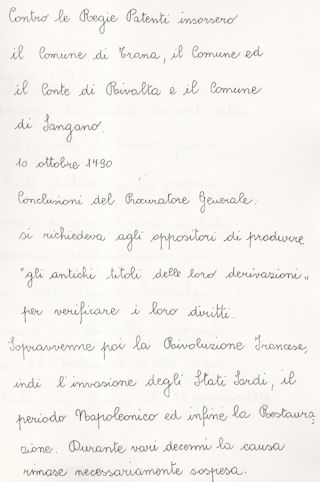 Contro le Regie Patenti insorsero
il Comune di Trana, il Comune ed
il Conte di Rivalta e il Comune
di Sangano.
10 ottobre 1790
Conclusioni del Procuratore Generale:
si richiedeva agli oppositori di produrre
"gli antichi titoli delle loro derivazioni„
per verificare i loro diritti.
Sopravvenne poi la Rivoluzione Francese,
indi l'invasione degli Stati Sardi, il
periodo Napoleonico ed infine la Restaura,
zione. Durante vari decenni la causa
rimase necessariamente sospesa.